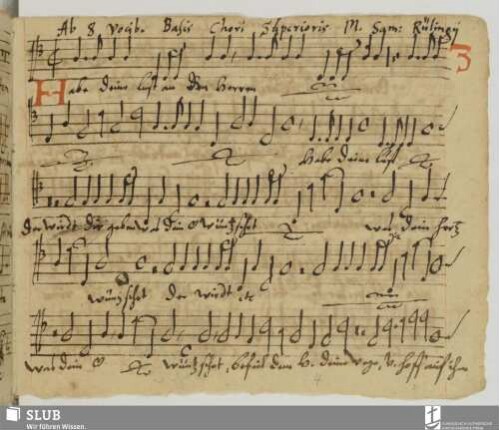 Ab 8 Vocib. Basis Chori Superioris M. Sam: Rülingÿ
3
Habe deine lust an den Herren
Habe deine lust
der wirdt dir geben was dein wüntzschet was dein hertz
wüntzschet der wirdt etc
was dein wüntzschet, befiel dem H. deine wege, V. hoff auf ihn
SLUB
Wir führen Wissen.